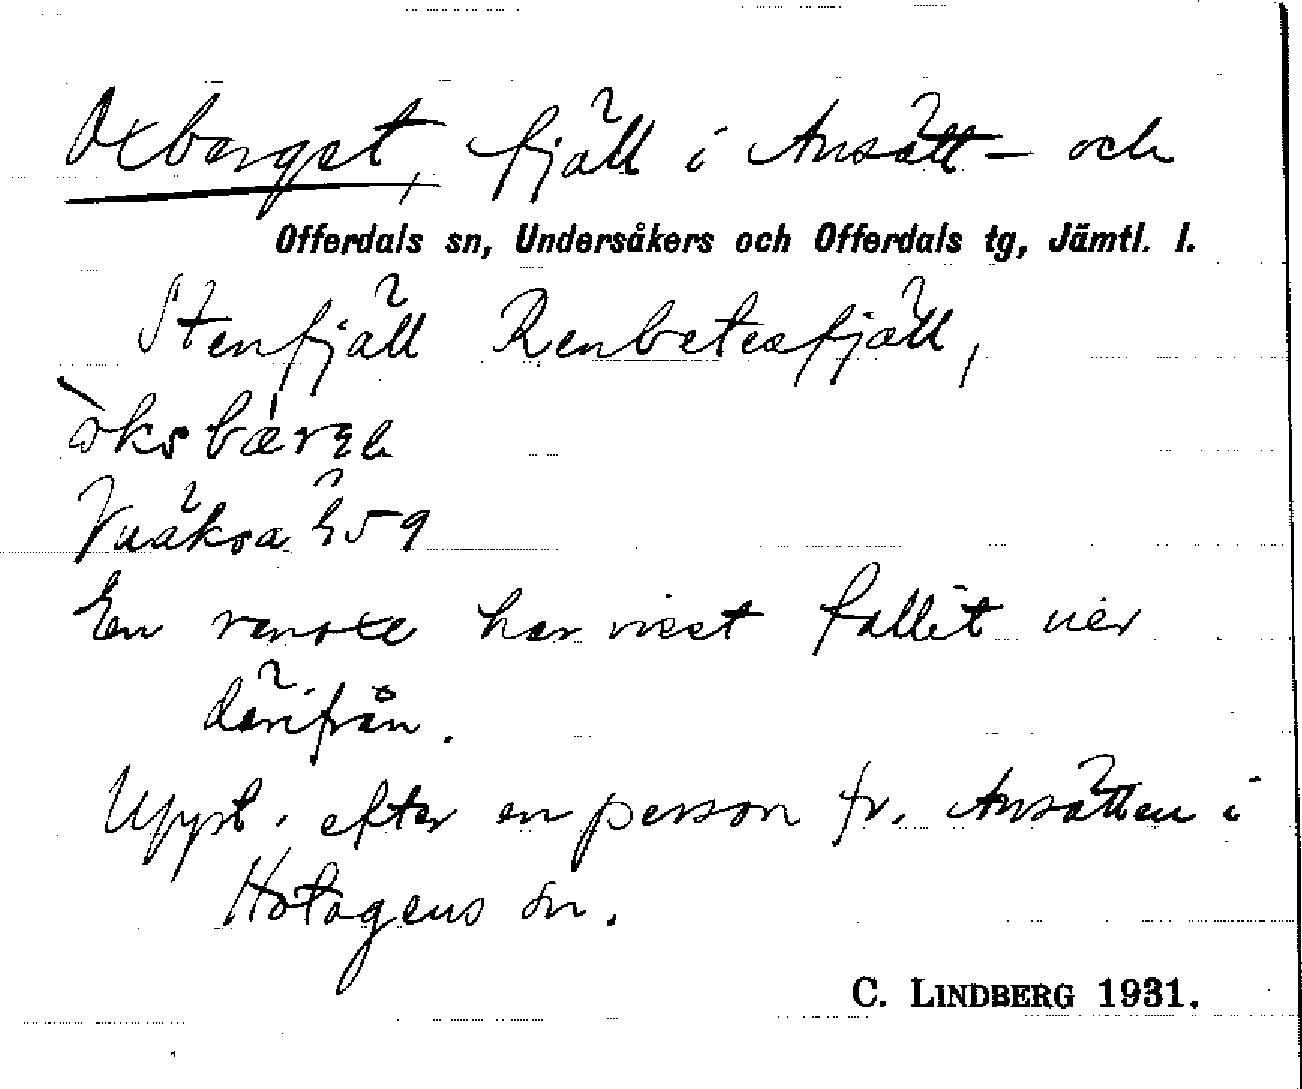 Oxberget, fjäll i Ansätt- och
Offerdals sn, Undersåkers och Offerdals tg, Jämtl. l.
Stenfjäll Renbetesfjäll,
En renoxe har visst fallit ner
därifrån.
Uppt. efter en person fr. Ansätten i
Hotagens sn.
C. LINDBERG 1931.